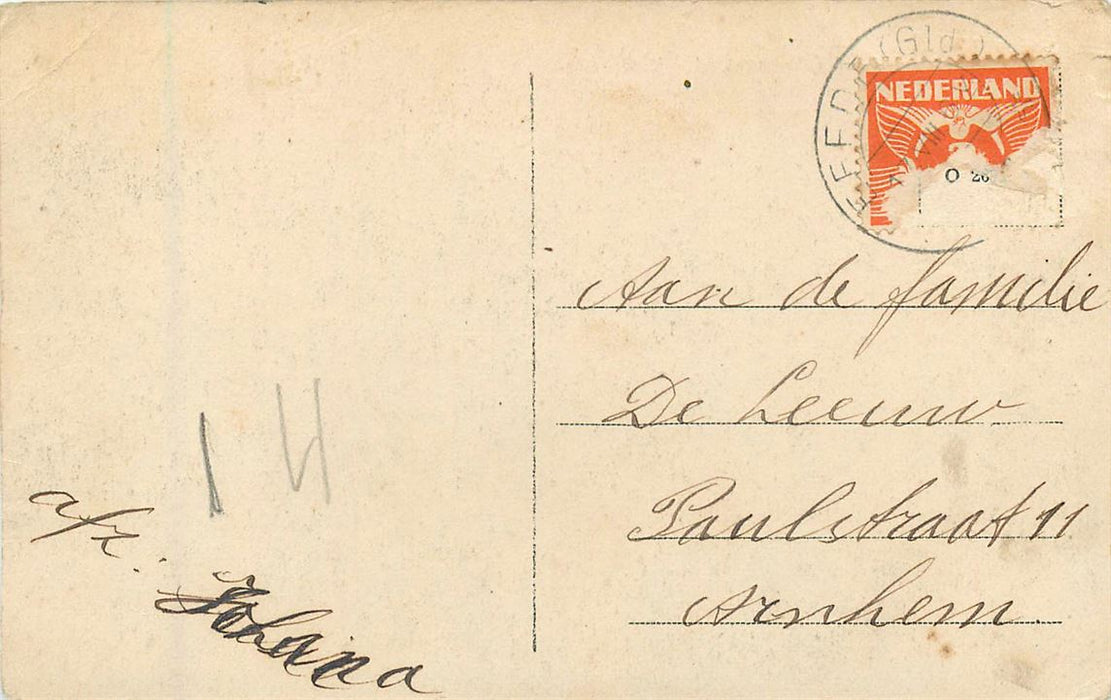 (Gld.)
NEDERLAND
O 26
Aan de familie
De Leeuw
Paulstraat 11
Arnhem.
14
afz. Johana